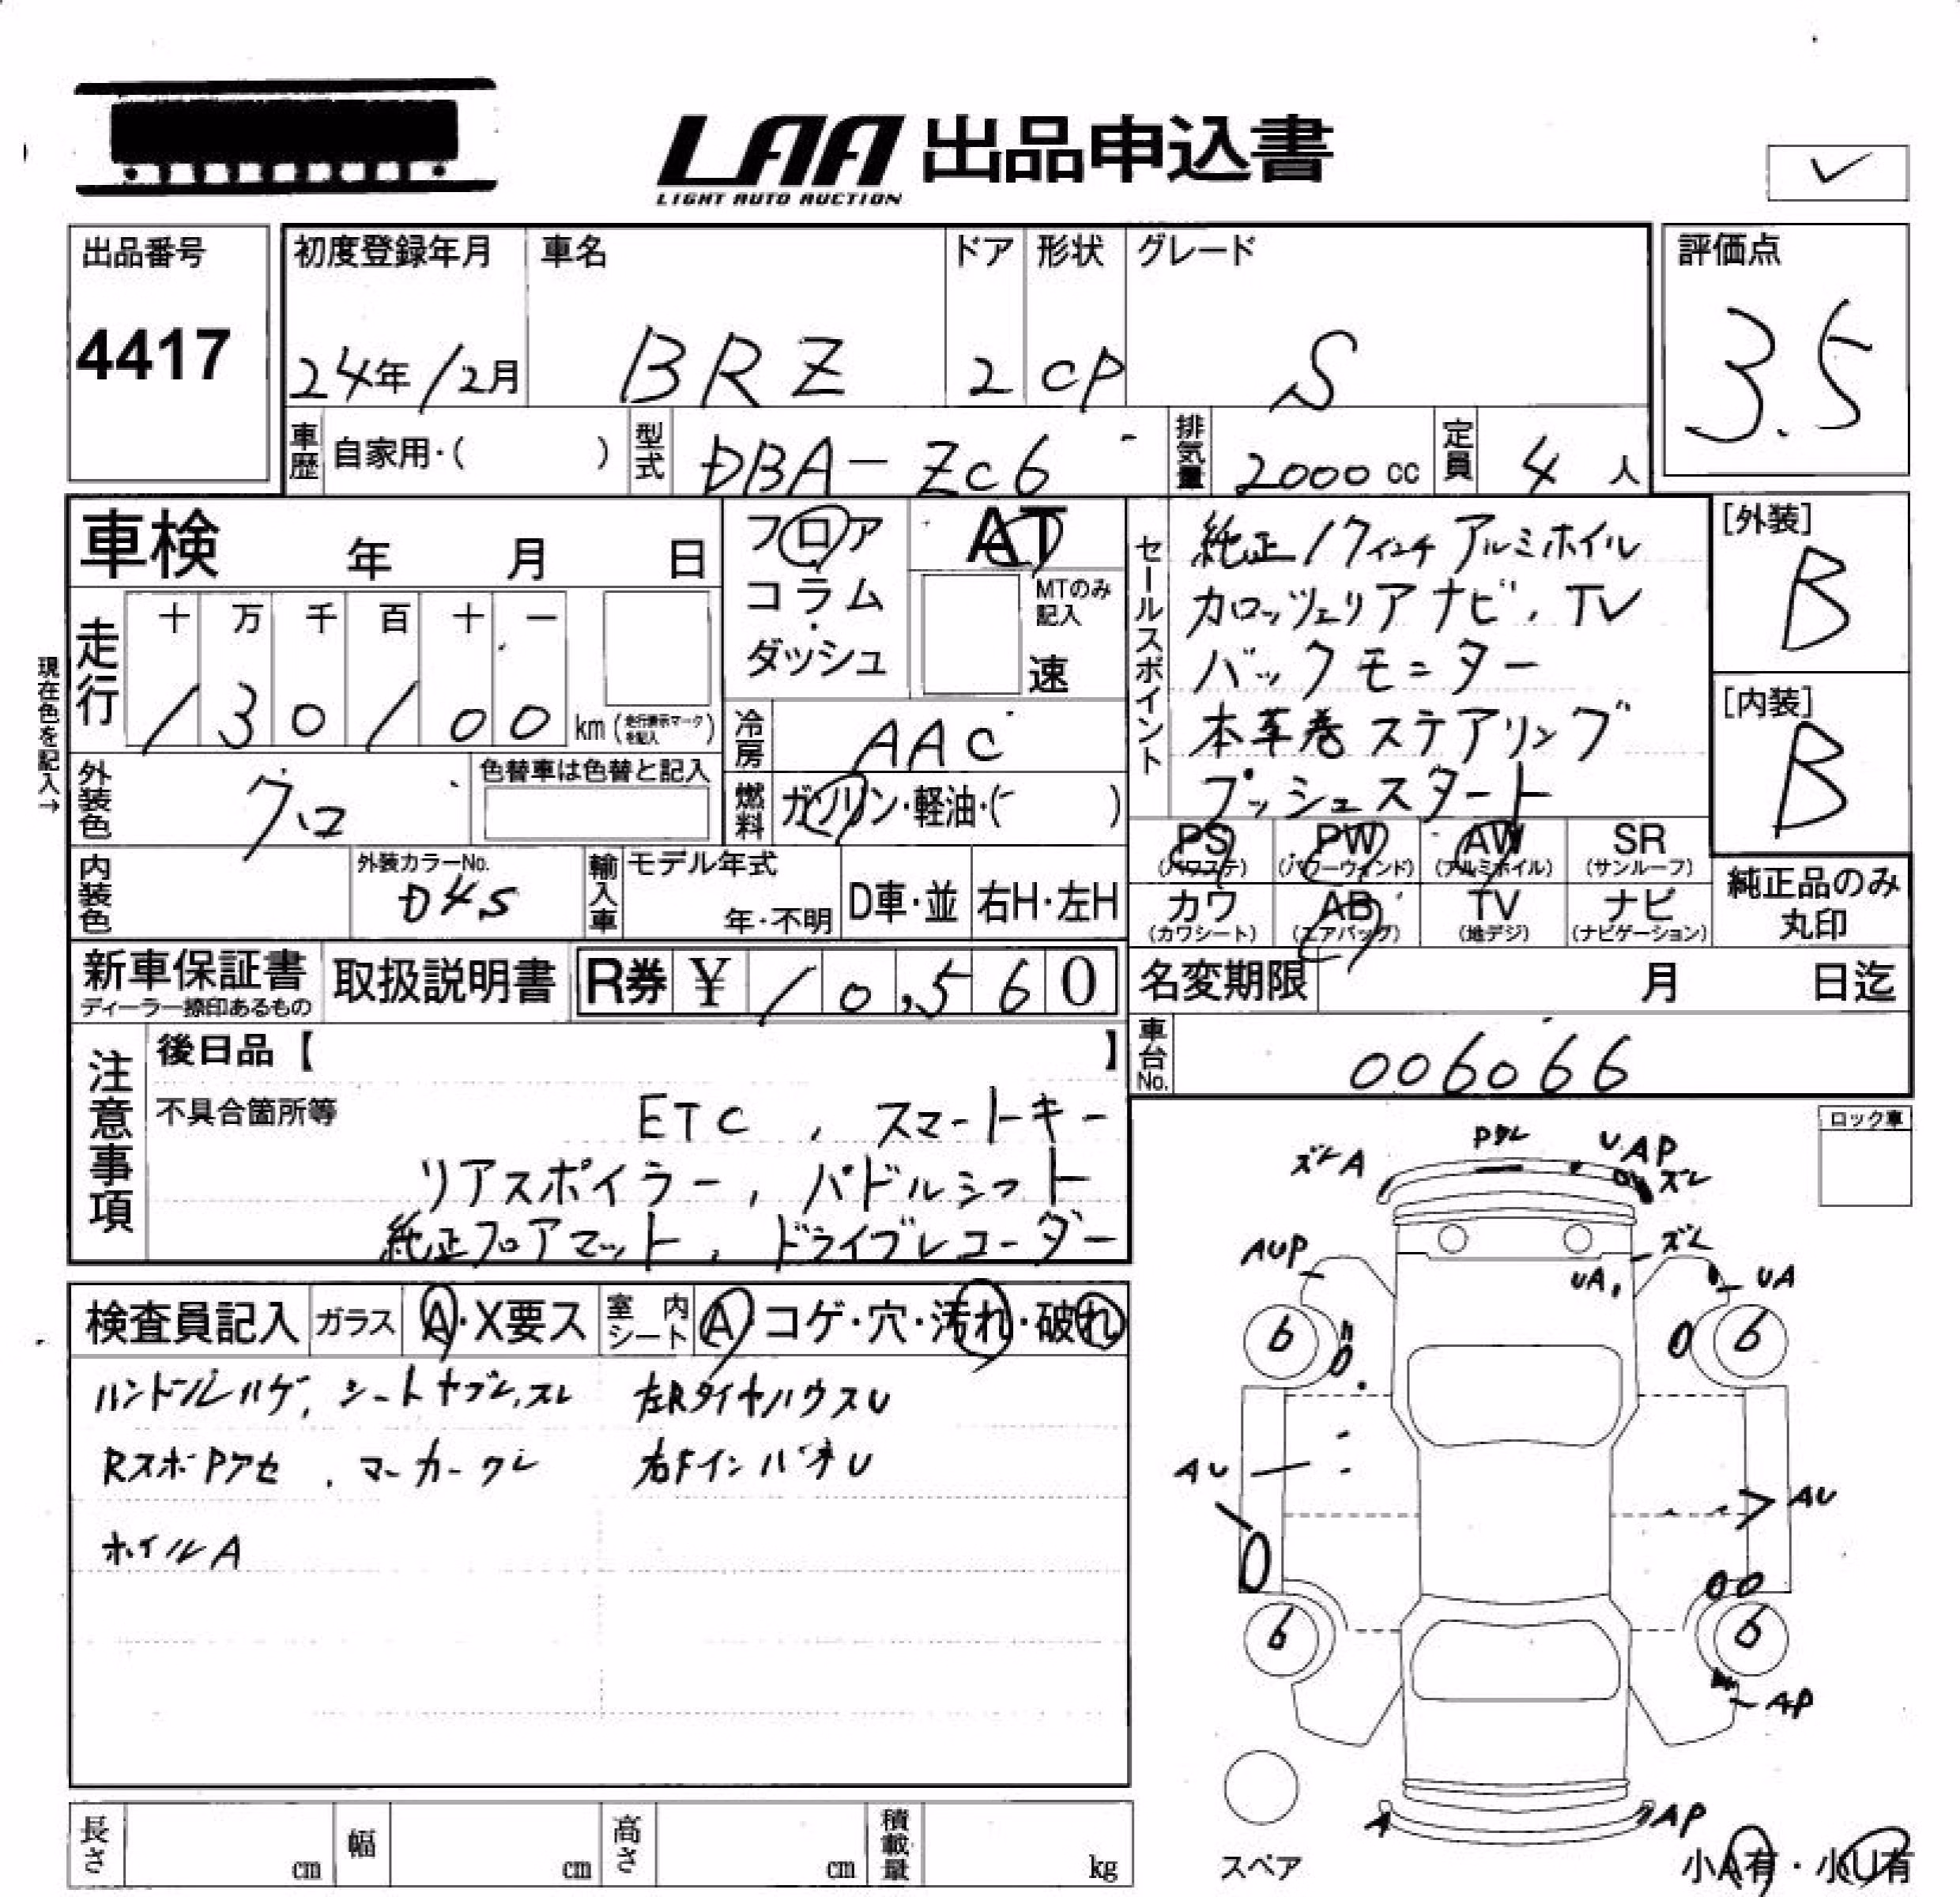 LAA 出品申込書
LIGHT AUTO AUCTION
出品番号
4417
初度登録年月
24年12月
車名
BRZ
ドア
2
形状
CP
グレード
S
評価点
3.5
車歴 自家用・( )
型式 DBA-ZC6
排気量 2000 cc
定員 4 人
車検 年 月 日
フロア
コラム
・
ダッシュ
AT
MTのみ
記入
速
現在色を記入→
走行
十 万 千 百 十 一
1 3 0 1 0 0 km (走行表示マークを記入)
冷房 AAC
外装色 クロ
色替車は色替と記入
燃料 ガソリン・軽油・( )
内装色
外装カラーNo.
D4S
輸入車
モデル年式
年・不明
D車・並
右H・左H
セールスポイント
純正17インチアルミホイル
カロッツェリアナビ、TV
バックモニター
本革巻ステアリング
プッシュスタート
[外装]
B
[内装]
B
PS
(パワステ)
PW
(パワーウィンド)
AW
(アルミホイル)
SR
(サンルーフ)
カワ
(カワシート)
AB
(エアバッグ)
TV
(地デジ)
ナビ
(ナビゲーション)
純正品のみ
丸印
新車保証書
ディーラー捺印あるもの
取扱説明書
R券 ¥ 10,560
名変期限 月 日迄
車台No. 006066
注意事項
後日品【 】
不具合箇所等
ETC , スマートキー
リアスポイラー, パドルシフト
純正フロアマット, ドライブレコーダー
検査員記入
ガラス A・X要ス
室内シート A・コゲ・穴・汚れ・破れ
ハンドルハゲ, シートヤブレ,スレ
左RタイヤハウスU
RスポPアセ , マーカークレ
右FインパネU
ホイルA
ロック車
Pクレ
ズレA
UAP
ズレ
AUP
ズレ
UA,
UA
6
6
AU
AU
6
6
AP
A
AP
スペア
小A有・小U有
長さ cm
幅 cm
高さ cm
積載量 kg